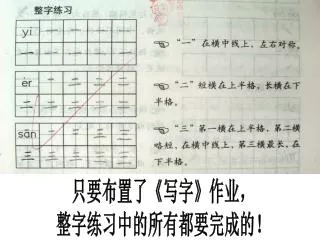 整字练习
yī
一 一 一 一 一 一
☜ “一”在横中线上，左右对称。
èr
二 二 二 二 二 二
☜ “二”短横在上半格，长横在下
半格。
sān
三 三 三 三 三 三
☜ “三”第一横在上半格，第二横
略短，在横中线上，第三横最长，在
下半格。
只要布置了《写字》作业，
整字练习中的所有都要完成的！